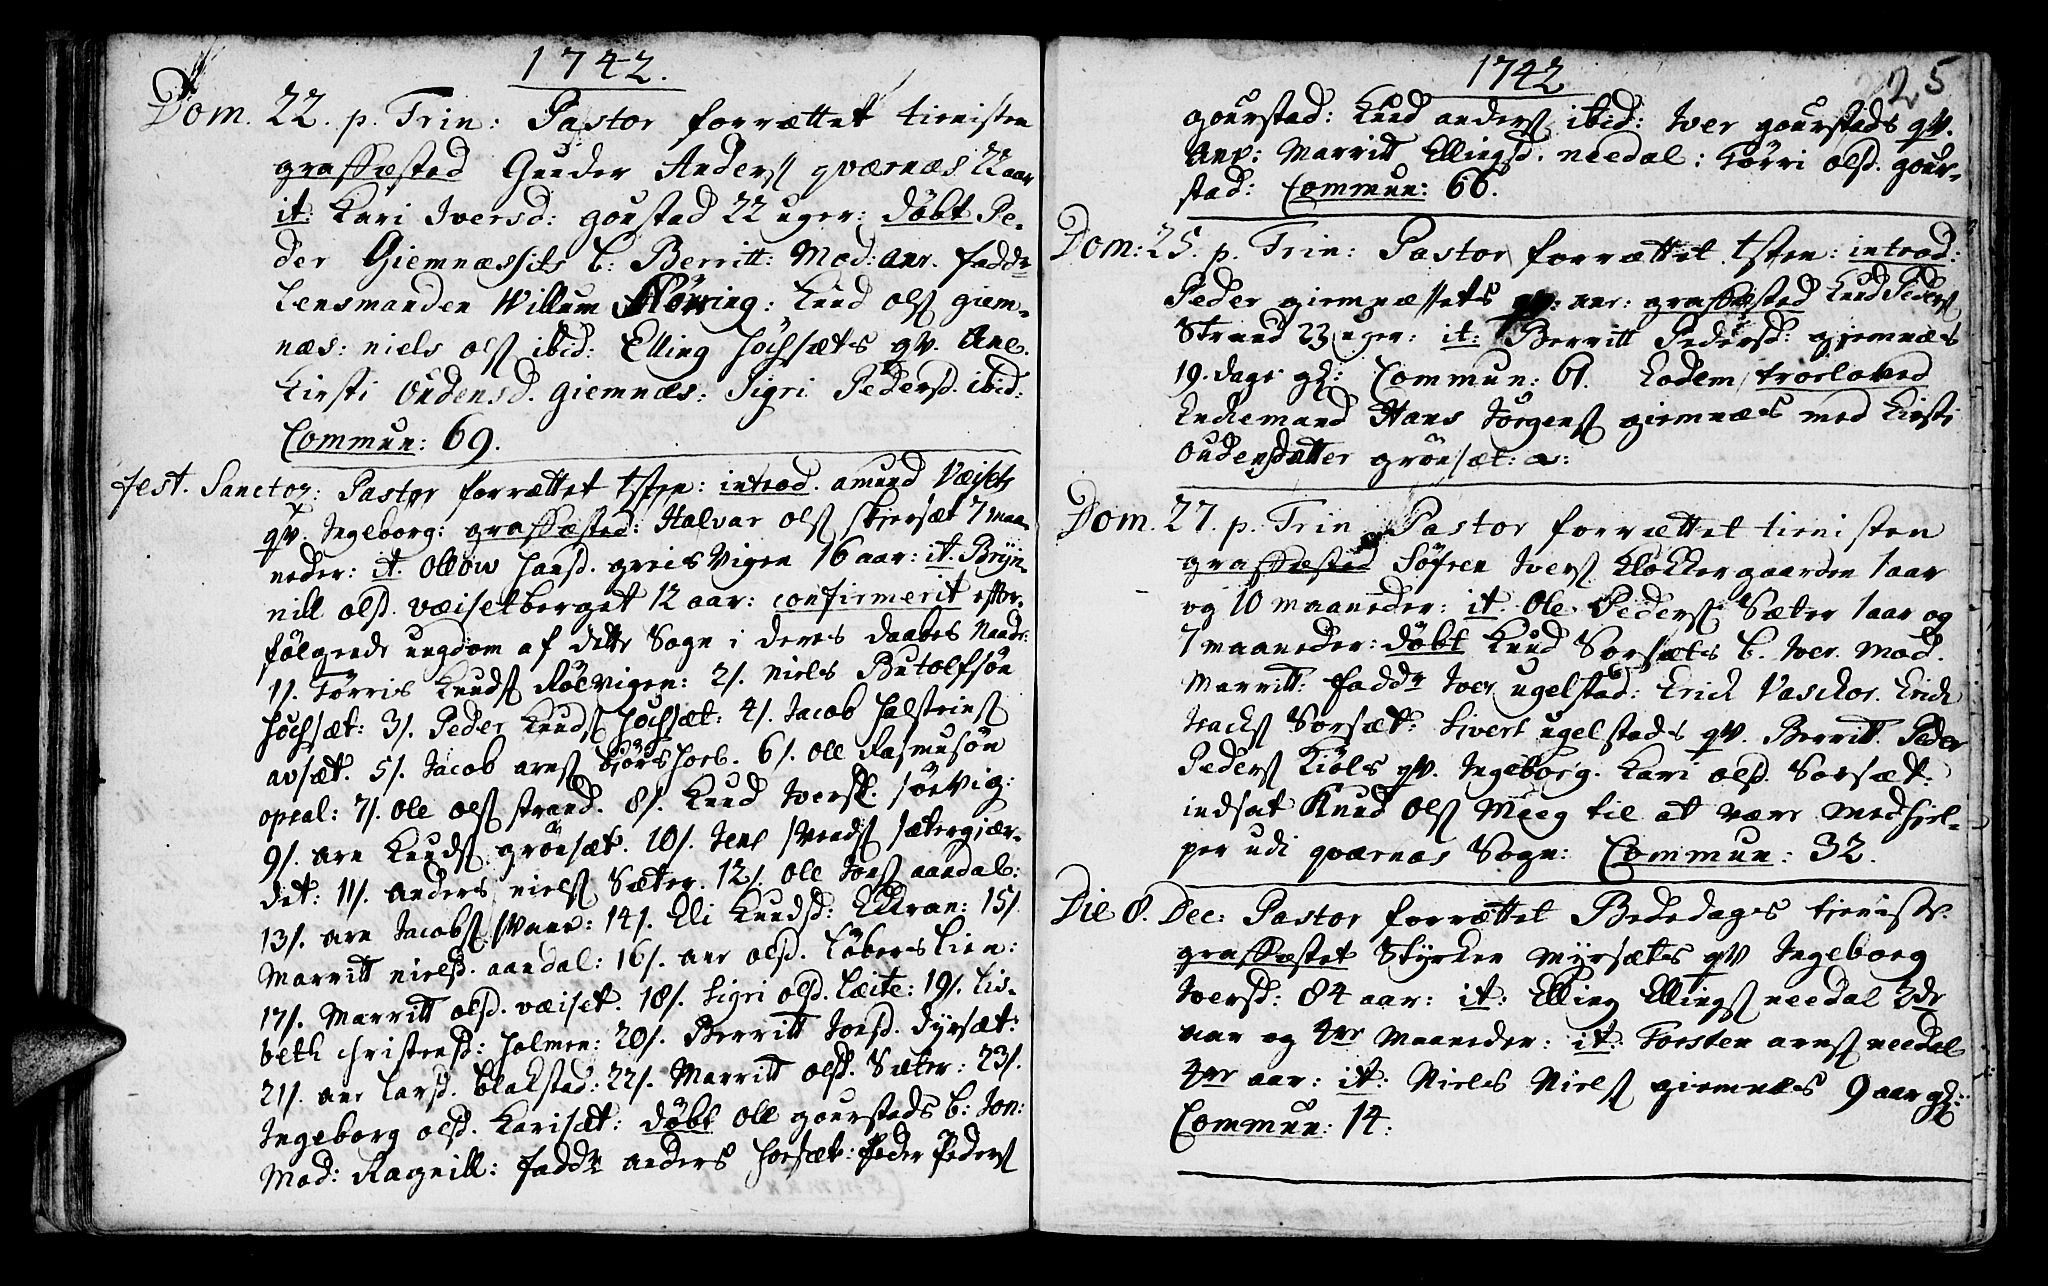 1742.
Dom. 22. p. Trin: Pastor forrættet tienisten
graffæsted Gunder Anders qværnæs 22 aar
it: Kari Iversd: goustad 22 uger: döbt Pe-
der Giemnæssets b: Berritt: Mod: Ane. fadd.
Lensmanden Willum: Knud ols giem-
næs: niels ols ibid: Elling höchsæts qv. Ane.
Kirsti Oudensd. giemnæs: Sigri Pedersd. ibid:
Commun: 69.
fest. Sanctor: Pastor forrættet tsten: introd. amund Væisets
qv. Ingeborg: graffæsted: Halvar ols skiersæt 7 maa-
neder: it. Ollow hansd. greisvigen 16 aar: it. Bryn-
nill olsd. væisetberget 12 aar: confirmerit efter-
fölgende ungdom af dette Sogn i deres daabes Naade:
1/. Törris Knuds Rölvigen: 2/. niels Butolfsön
höchsæt: 3/. Peder Knuds höchsæt: 4/. Jacob halsteins
avsæt. 5/. Jacob arns. 6/. Ole Rasmusön
opeal: 7/. Ole ols strand. 8/. Knud Ivers sörvig:
9/. arn Knuds grönsæt. 10/. Jens svends sætergiær-
det: 11/. anders niels Sæter. 12/. Ole Jons aandal:
13/. arn Jacobs svane: 14/. Eli Knudsd: Eltran: 15/.
Marritt nielsd. aandal: 16/. ane olsd. löberslien:
17/. Marritt olsd. væiset. 18/. Sigri olsd. Læite: 19/. Lis-
beth christensd: holmen: 20/. Berritt Joesd. dyrsæt:
21/. ane Larsd. blakstad: 22/. Marritt olsd. Sæter: 23/.
Ingeborg olsd. Karisæt: döbt Ole gourstads b: Jon:
Mod: Ragnill: faddr anders horsæt: Peder Peders
1742
25
gourstad: Knud anders ibid: Iver gourstads qv.
Ane: Marritt Ellingsd. needal: Törri olsd. gour-
stad: Commun: 66.
Dom: 25. p. Trin: Pastor forrættet tsten: introd:
Peder giemnæssets qv: ane: graffæsted Knud Peders
Strand 23 uger: it: Berritt Pedersd: giemnæs
19. dage gl: Commun: 61. Eodem troeloved
Enckemand Hans Jörgens giemnæs med Kirsti
Oudensdatter grönsæt:
Dom. 27. p. Trin Pastor forrættet tienisten
graffæsted Söfren Ivers Klokkergaarden 1 aar
og 10 maaneder: it. Ole Peders Sæter 1 aar og
7 maaneder: döbt Knud Sorsæts b. Iver. Mod.
Marritt: faddr Iver ugelstad: Erich Vaschor. Erich
Isachs Sorsæt: Sivert ugelstads qv. Berritt. Peder
Peders Kiöls qv. Ingeborg. Kari olsd. Sorsæt:
indsat Knud Ols Meeg til at være Medhiel-
per udi qværnæs Sogn: Commun: 32.
Die 8. Dec: Pastor forrættet Bededags tieniste.
graffæstet Styrker myrsæts qv Ingeborg
Iversd: 84 aar: it: Elling Ellings needal 3de
aar og 4re Maaneder: it: Torsten arns needal
4re aar: it: Niels Niels giemnæs 9 aar gl:
Commun: 14: